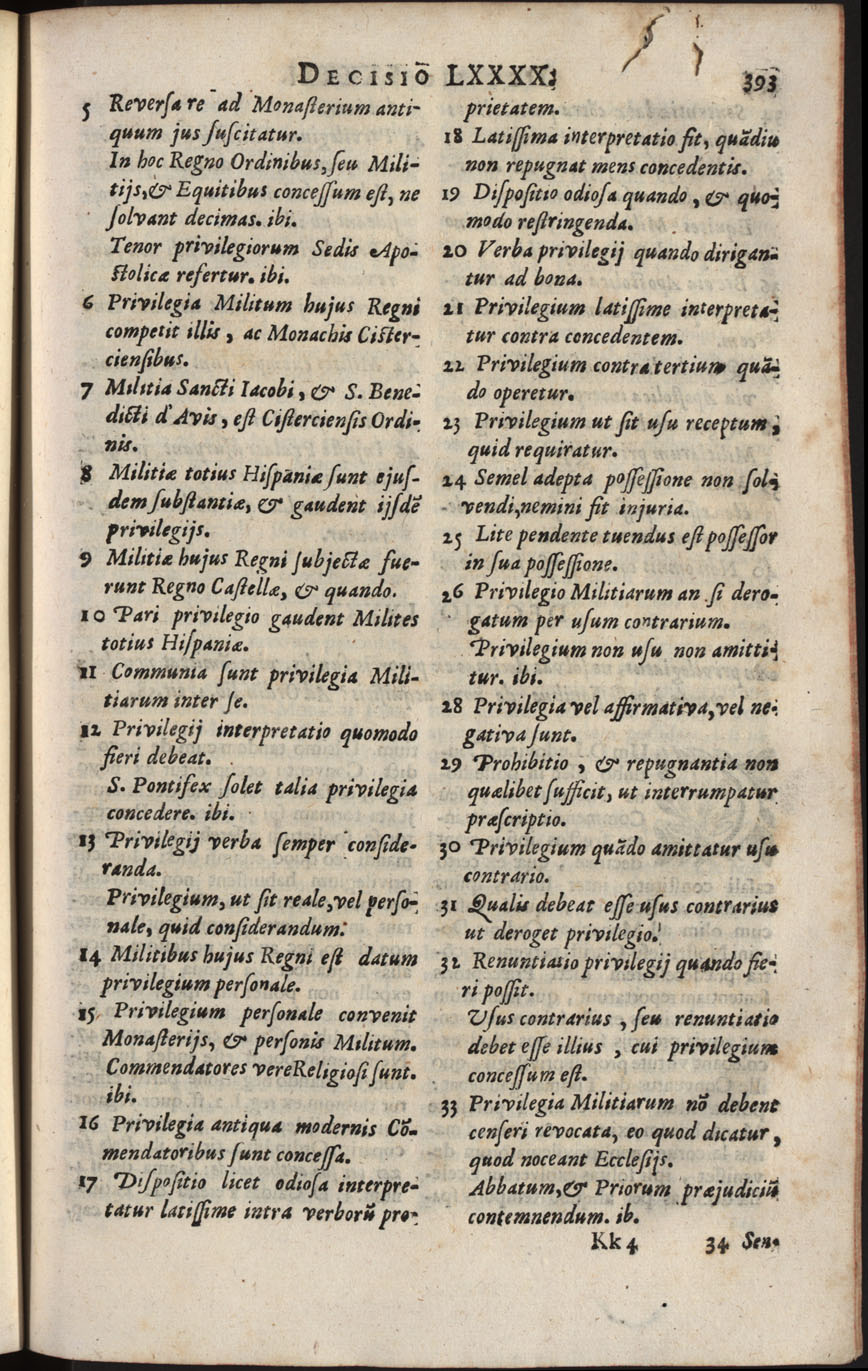 DECISIO LXXXX. 393
5 Reversa re ad Monasterium anti-
quum jus suscitatur.
In hoc Regno Ordinibus, seu Mili-
tijs, & Equitibus concessum est, ne
solvant decimas. ibi.
Tenor privilegiorum Sedis Apo-
stolicæ refertur. ibi.
6 Privilegia Militum hujus Regni
competit illis, ac Monachis Cister-
ciensibus.
7 Militia Sancti Iacobi, & S. Bene-
dicti d'Avis, est Cisterciensis Ordi-
nis.
8 Militiæ totius Hispaniæ sunt ejus-
dem substantiæ, & gaudent ijsdē
privilegijs.
9 Militiæ hujus Regni subjectæ fue-
runt Regno Castellæ, & quando.
10 Pari privilegio gaudent Milites
totius Hispaniæ.
11 Communia sunt privilegia Mili-
tiarum inter se.
12 Privilegij interpretatio quomodo
fieri debeat.
S. Pontifex solet talia privilegia
concedere. ibi.
13 Privilegij verba semper conside-
randa.
Privilegium, ut sit reale, vel perso-
nale, quid considerandum.
14 Militibus hujus Regni est datum
privilegium personale.
15 Privilegium personale convenit
Monasterijs, & personis Militum.
Commendatores vere Religiosi sunt.
ibi.
16 Privilegia antiqua modernis Cō-
mendatoribus sunt concessa.
17 Dispositio licet odiosa interpre-
tatur latissime intra verborū pro-
prietatem.
18 Latissima interpretatio fit, quādiu
non repugnat mens concedentis.
19 Dispositio odiosa quando, & quo-
modo restringenda.
20 Verba privilegij quando dirigan-
tur ad bona.
21 Privilegium latissime interpreta-
tur contra concedentem.
22 Privilegium contra tertium quā-
do operetur.
23 Privilegium ut sit usu receptum,
quid requiratur.
24 Semel adepta possessione non sol-
vendi, nemini fit injuria.
25 Lite pendente tuendus est possessor
in sua possessione.
26 Privilegio Militiarum an si dero-
gatum per usum contrarium.
Privilegium non usu non amitti-
tur. ibi.
28 Privilegia vel affirmativa, vel ne-
gativa sunt.
29 Prohibitio, & repugnantia non
quælibet sufficit, ut interrumpatur
præscriptio.
30 Privilegium quādo amittatur usu
contrario.
31 Qualis debeat esse usus contrarius
ut deroget privilegio.
32 Renuntiatio privilegij quando fie-
ri possit.
Usus contrarius, seu renuntiatio
debet esse illius, cui privilegium
concessum est.
33 Privilegia Militiarum nō debent
censeri revocata, eo quod dicatur,
quod noceant Ecclesijs.
Abbatum, & Priorum præjudiciū
contemnendum. ib.
Kk 4 34 Sen-